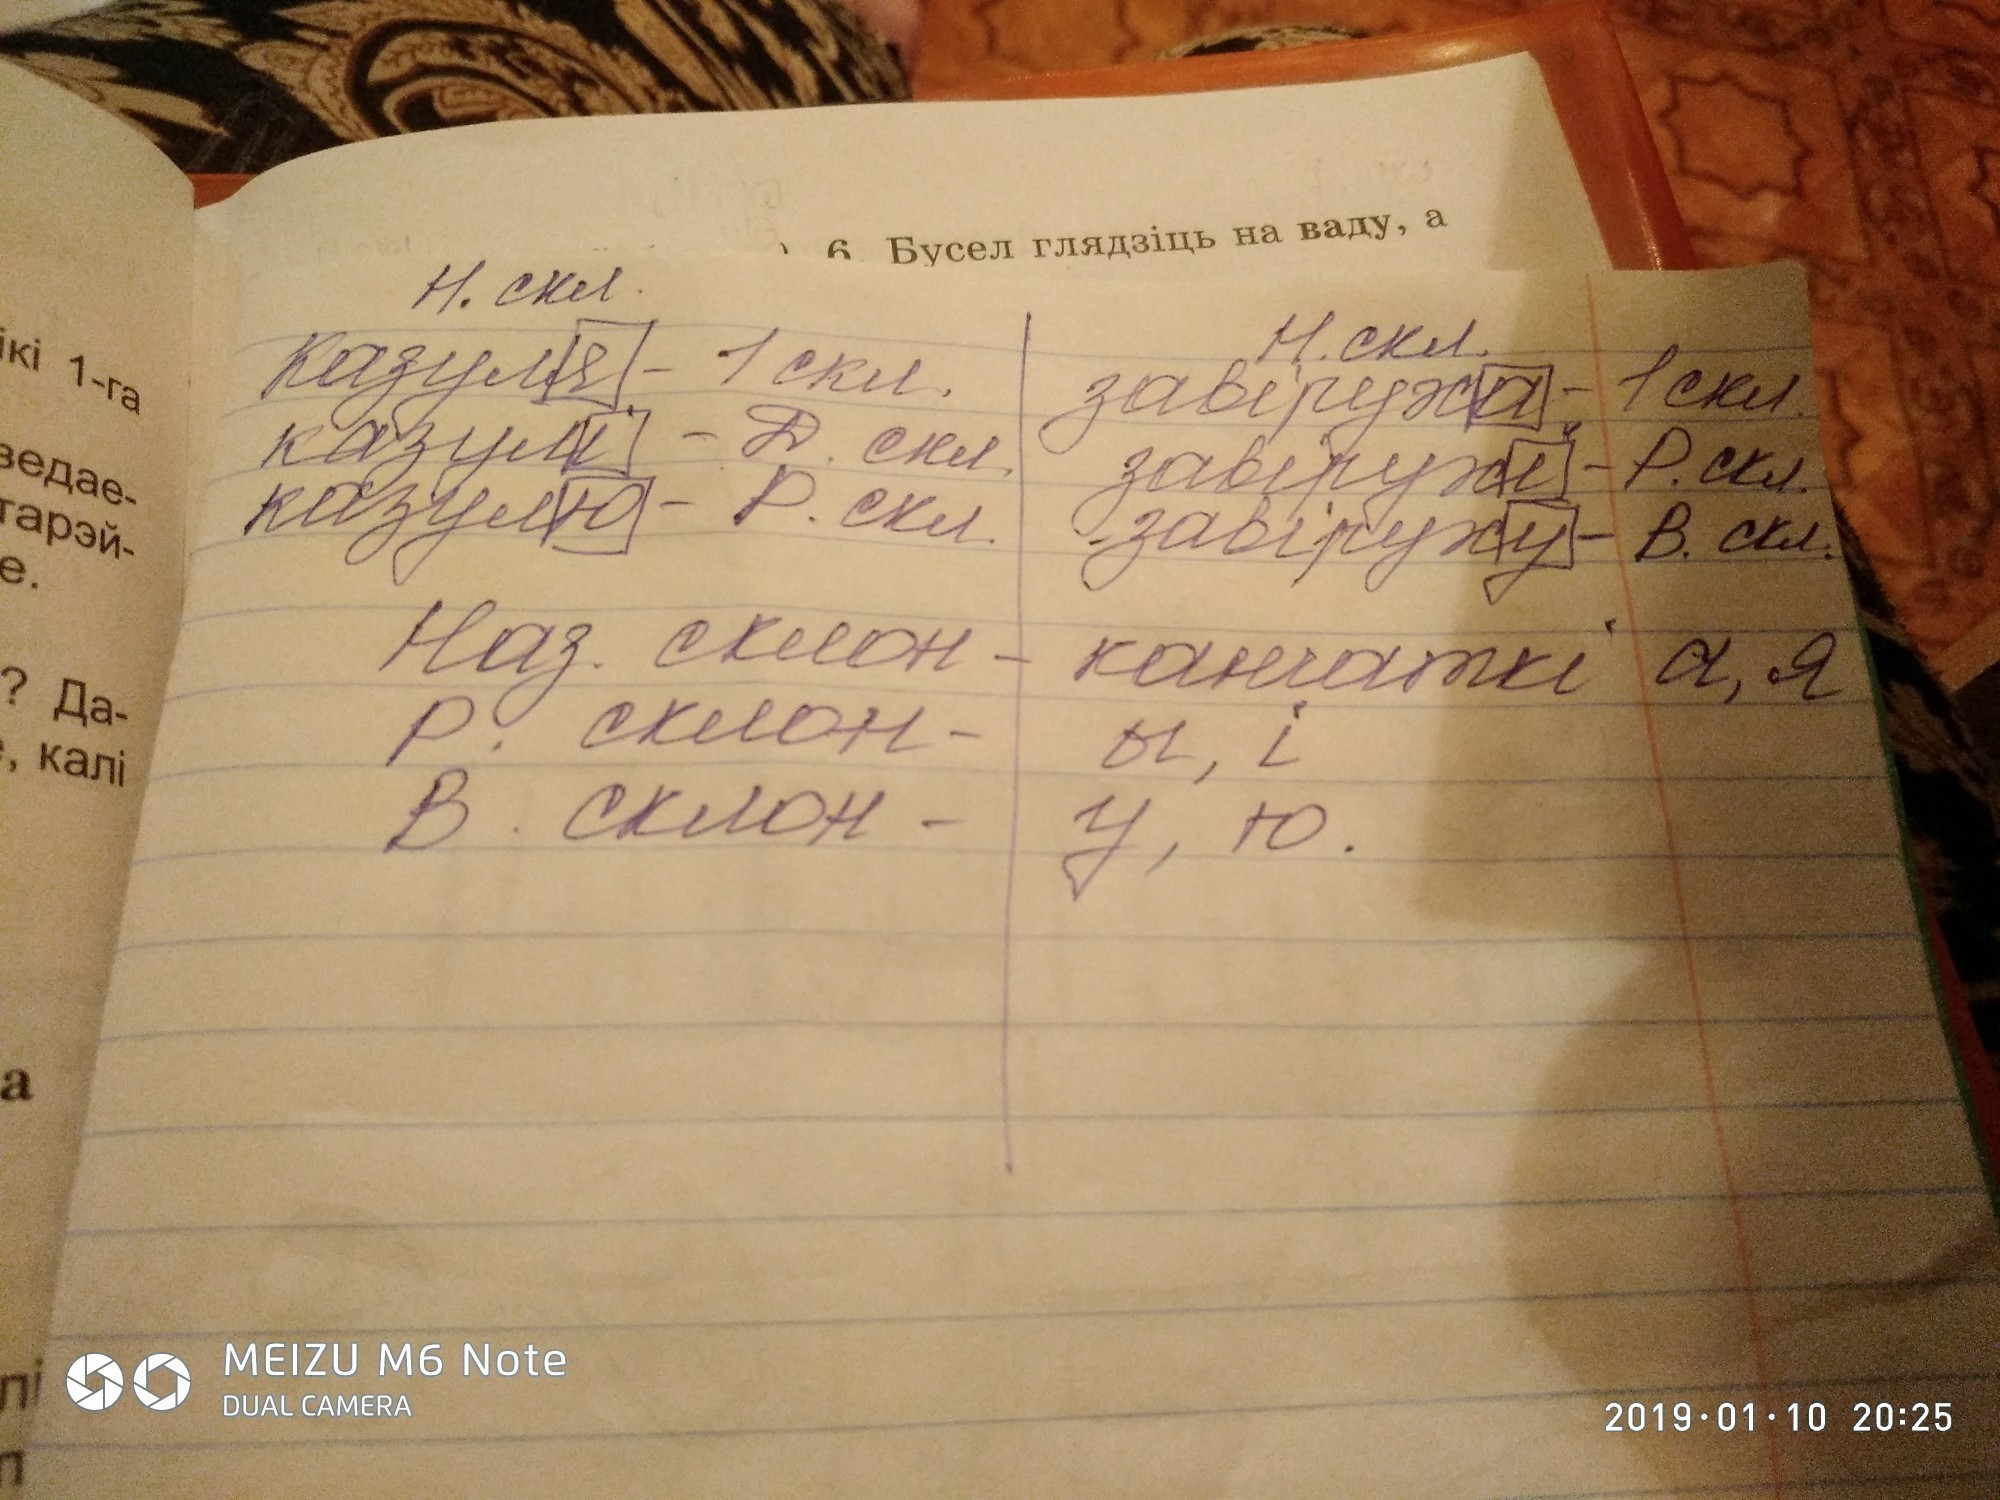 6 Бусел глядзіць на ваду, а
Н. скл.
казуля - 1 скл.
казулі - Д. скл.
казулю - Р. скл.
Н. скл.
завіружа - 1 скл.
завіружі - Р. скл.
завіружу - В. скл.
Наз. склон - канчаткі а, я
Р. склон - ы, і
В. склон - у, ю.
ікі 1-га
ведае-
тарэй-
е.
? Да-
, калі
а
лі
п
MEIZU M6 Note
DUAL CAMERA
2019·01·10 20:25